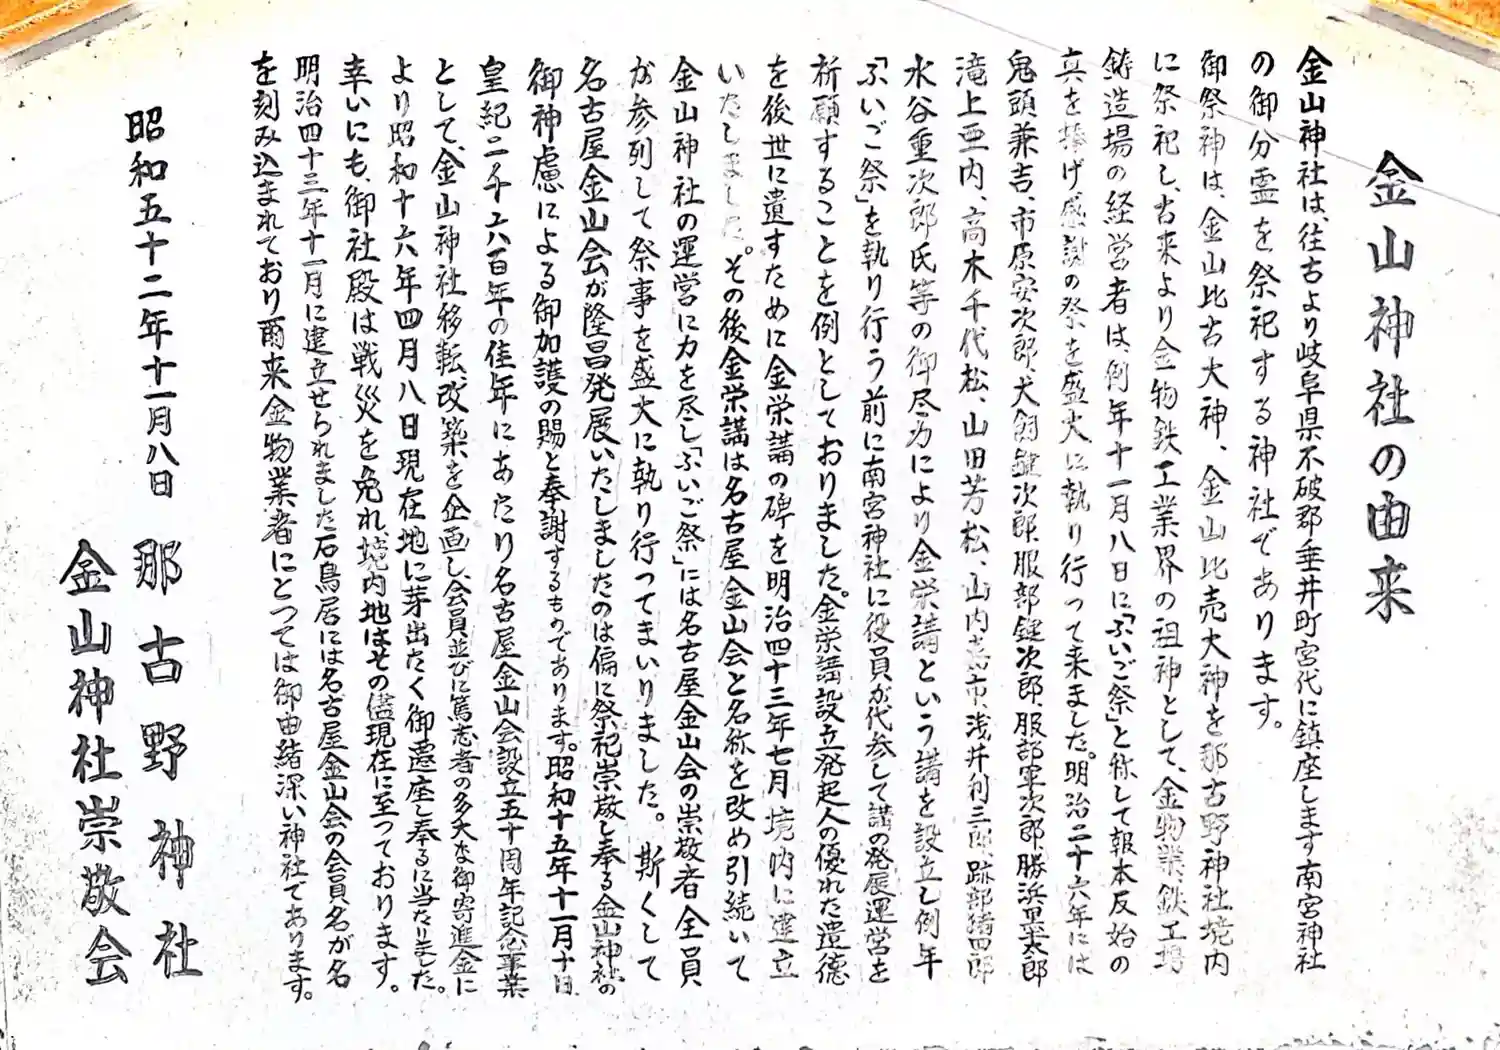 金山神社の由来
金山神社は、往古より岐阜県不破郡垂井町宮代に鎮座します南宮神社
の御分霊を祭祀する神社であります。
御祭神は、金山比古大神、金山比売大神を那古野神社境内
に祭祀し、古来より金物鉄工業界の祖神として、金物業、鉄工場
鋳造場の経営者は、例年十一月八日に「ふいご祭」と称して報本反始の
真を捧げ感謝の祭を盛大に執り行って来ました。明治二十六年には
鬼頭兼吉、市原安次郎、犬飼鍵次郎、服部鍵次郎、服部軍次郎、勝浜太郎
滝上亜内、高木千代松、山田芳松、山内市、浅井利三郎、跡部猪四郎
水谷重次郎氏等の御尽力により金栄講という講を設立し例年
「ふいご祭」を執り行う前に南宮神社に役員が代参して講の発展運営を
祈願することを例としておりました。金栄講設立発起人の優れた遺徳
を後世に遺すために金栄講の碑を明治四十三年七月境内に建立
いたしました。その後金栄講は名古屋金山会と名称を改め引続いて
金山神社の運営に力を尽し「ふいご祭」には名古屋金山会の崇敬者全員
が参列して祭事を盛大に執り行ってまいりました。斯くして
名古屋金山会が隆昌発展いたしましたのは偏に祭祀崇敬し奉る金山神社の
御神慮による御加護の賜と奉謝するものであります。昭和十五年十一月十日
皇紀二千六百年の佳年にあたり名古屋金山会設立五十周年記念事業
として、金山神社移転、改築を企画し、会員並びに篤志者の多大な御寄進金に
より昭和十六年四月八日現在地に芽出たく御遷座し奉るに当たりました。
幸いにも、御社殿は戦災を免れ境内地はその儘現在に至っております。
明治四十三年十一月に建立せられました石鳥居には名古屋金山会の会員名が名
を刻み込まれており爾来金物業者にとっては御由緒深い神社であります。
昭和五十二年十一月八日
那古野神社
金山神社崇敬会